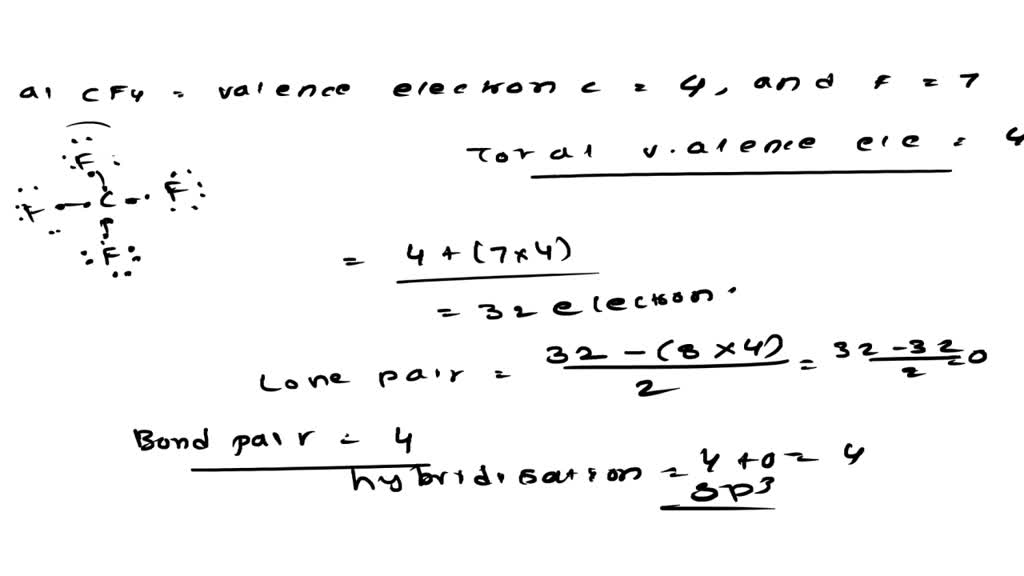 a) CF4 = valence electron C = 4, and F = 7
Total valence ele = 4
F
F C F
F
= 4 + (7×4)
= 32 electron.
Lone pair = 32 - (8×4) / 2 = 32 - 32 / 2 = 0
Bond pair = 4
hybridisation = 4 + 0 = 4
sp3